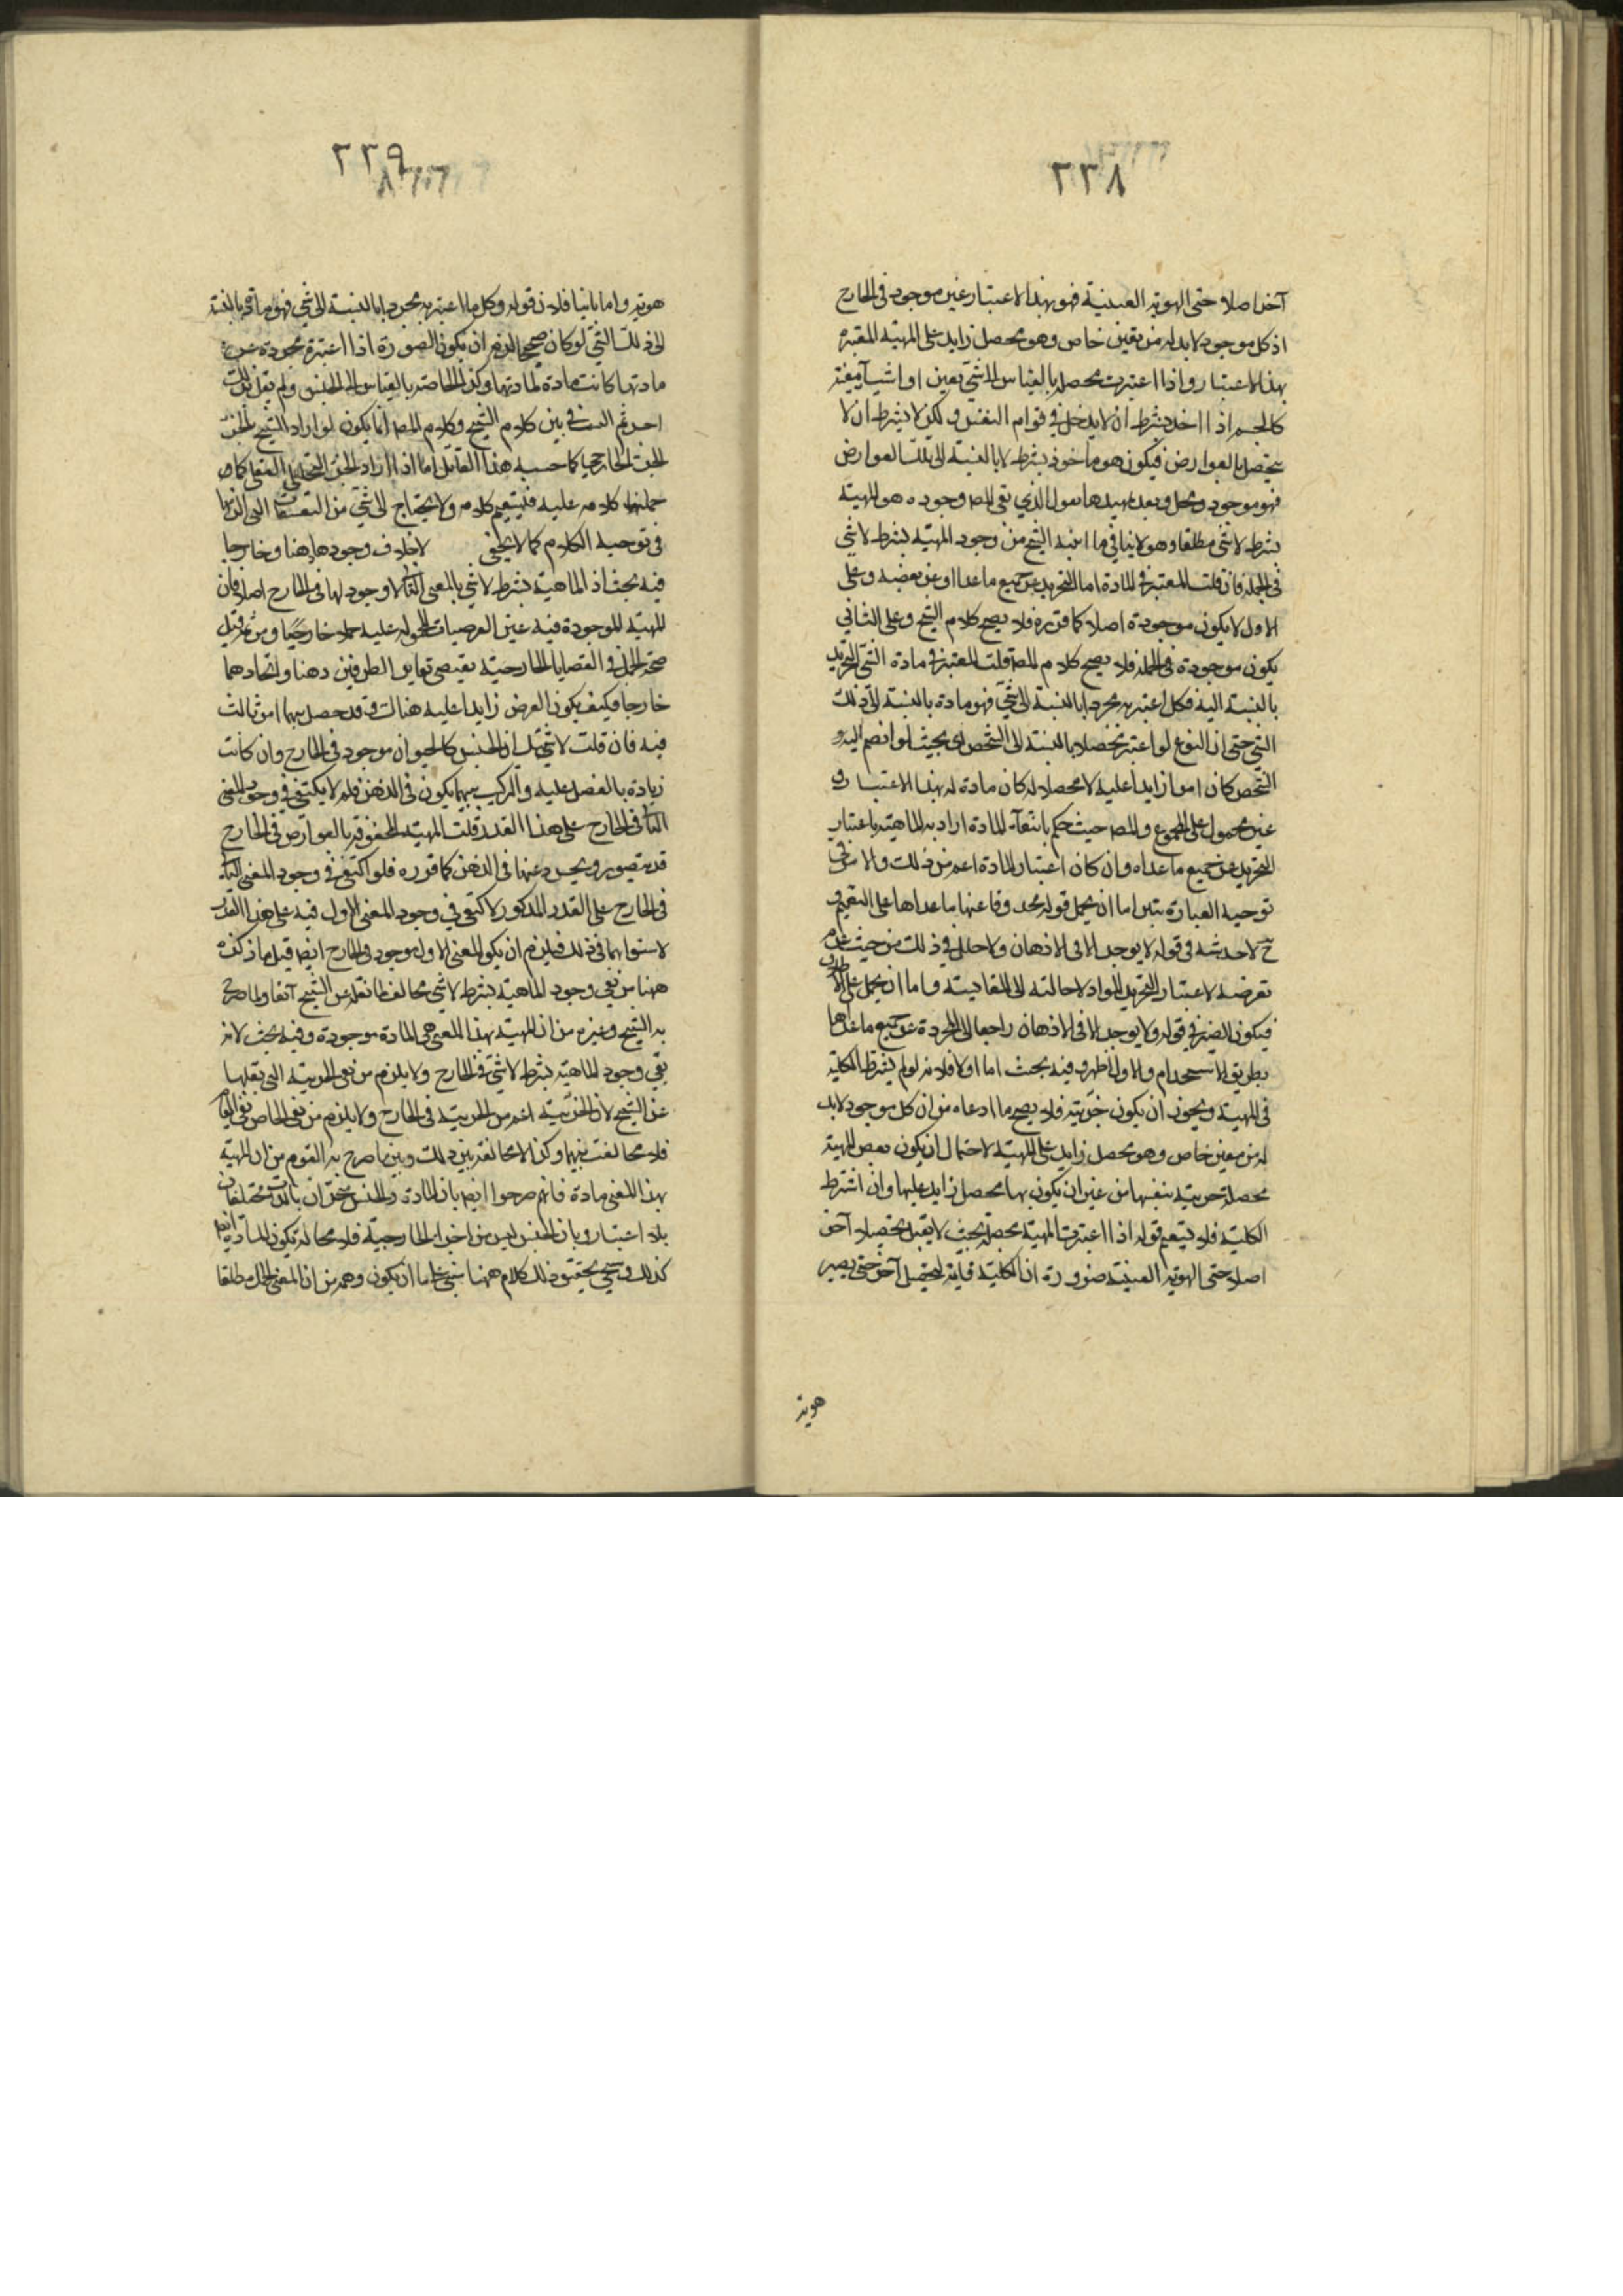 ٢٣٨
آخر اصلا حتى الهوية العينية فهو بهذا الاعتبار غير موجود فى الخارج
اذ كل موجود لابد له من تعين خاص وهو تحصل زايد على المهية المعتبرة
بهذا الاعتبار واذا اعتبرت محصله بالقياس الى شئ معين او اشيآ معينة
كالجسم اذا اخذ بشرط ان لا يدخل فى قوام النفس ولكن لا بشرط ان لا
يتحصل بالعوارض فيكون هو ماخوذ بشرط لا بالنسبة الى تلك العوارض
فهو موجود ومحل وبعد تمهيدها نقول الذي نفى المص وجوده هو المهية
بشرط لا شئ مطلقا وهو لا ينافى ما اثبته الشيخ من وجود المهية بشرط لا شئ
فى الجمله فان قلت المعتبر فى المادة اما التجريد عن جميع ما عدا او عن بعضه وعلى
الاول لا يكون موجودة اصلا كما قرره فلا يصح كلام الشيخ وعلى الثانى
يكون موجودة فى الجمله فلا يصح كلام المص قلت المعتبر فى مادة الشئ التجريد
بالنسبة اليه فكل اعتبر مجردا بالنسبة الى شئ فهو مادة بالنسبة الى ذلك
الشئ حتى ان النوع لو اعتبر تحصلا بالنسبة الى الشخص اى بحيث لو انضم اليه
التشخص كان امرا زايدا عليه لا محصلا له كان مادة له بهذا الاعتبار و
غير محمول على المجموع والمص حيث حكم بانتفآء المادة اراد به الماهية باعتبار
التجريد عن جميع ما عداه وان كان اعتبار المادة اعم من ذلك والامر فى
توجيه العبارة بين اما ان يحمل قوله محذوفا عنها ما عداها على التعميم و
ح لا خدشه فى قوله لا يوجد الا فى الاذهان ولا خلل فى ذلك من حيث عدم
تعرضه لاعتبار التجريد المواد لاحالته الى المقايسة واما ان يحمل على الاطلاق
فيكون الضمير فى قوله ولا يوجد الا فى الاذهان راجعا الى المجردة عن جميع ما عداها
بطريق الاستخدام والاول اظهر وفيه بحث اما اولا فلانه لو لم يشترط الكلية
فى المهية ويجوز ان يكون جزئية فلا يصح ما ادعاه من ان كل موجود لابد
له من تعين خاص وهو تحصل زايد على المهية لاحتمال ان يكون بعض المهية
محصلة جزئية بنفسها من غير ان يكون بها تحصل زايد عليها وان اشترط
الكلية فلا يستقيم قوله اذا اعتبرت المهية محصله بحيث لا يقبل تحصيلا آخر
اصلا حتى الهوية العينية ضرورة ان الكلية قابلة لتحصيل آخر حتى يصير
هوية
٢٣٩
هوية واما ثانيا فلان قوله وكل ما اعتبر مجردا بالنسبة الى شئ فهو مادة بالنسبة
الى ذلك الشئ لو كان صحيحا لزم ان يكون الصورة اذا اعتبرت مجردة عن
مادتها كانت مادة لمادتها وكذا الخاصة بالقياس الى الجنس ولم يقل بذلك
احد ثم التنافى بين كلام الشيخ وكلام المص انما يكون لو اراد الشيخ بالجزء
الجزء الخارجى كما حسبه هذا القائل اما اذا اراد الجزء التحليلى العقلى كما
حملنا كلامه عليه فيستقيم كلامه ولا يحتاج الى شئ من التعسفات التى ارتكبها
فى توجيه الكلام كما لا يخفى لاختلاف وجودها ذهنا وخارجا
فيه بحث اذ الماهية بشرط لا شئ بالمعنى الثانى لا وجود لها فى الخارج اصلا فان
المهية الموجودة فيه عين العرضيات المحمولة عليه حملا خارجيا ومن ثم قيل
صحة الحمل فى القضايا الخارجية يقتضى تغاير الطرفين ذهنا واتحادهما
خارجا فكيف يكون العرض زايدا عليه هنالك وقد حصل بهما امر ثالث
فيه فان قلت لا شك ان الجنس كالحيوان موجود فى الخارج وان كانت
زيادة بالفصل عليه والمركب بهما يكون فى الذهن فلم لا يكتفى فى وجود المعنى
الثانى فى الخارج على هذا القدر قلت المهية المحفوفة بالعوارض فى الخارج
قد يتصور ويجرد عنها فى الذهن كما قرره فلو اكتفى فى وجود المعنى الثانى
فى الخارج على القدر المذكور لاكتفى فى وجود المعنى الاول فيه على هذا القدر
لاستوائهما فى ذلك فيلزم ان يكون المعنى الاول موجود فى الخارج ايض قيل ما ذكره
ههنا من نفى وجود الماهية بشرط لا شئ مخالف لما نقله عن الشيخ آنفا ولما صرح
به الشيخ وغيره من ان المهية بهذا المعنى هى المادة موجودة وفيه بحث لانه
نفى وجود الماهية بشرط لا شئ فى الخارج ولا يلزم من نفى الجزئية التى نقلها
عن الشيخ لان الجزئية اعم من الجزئية فى الخارج ولا يلزم من نفى الخاص نفى العام
فلا مخالفة بينهما وكذا لا مخالفة بين ذلك وبين ما صرح به القوم من ان المهية
بهذا المعنى مادة فانهم صرحوا ايض بان المادة والجنس متحدان بالذات مختلفان
بالاعتبار وبان الجنس ليس من اجزاء الخارجية فلا محالة يكون المادة ايض
كذلك وسيجئ تحقيق ذلك الكلام ههنا شئ واما ان يكون وهم من ان المعنى الحمل مطلقا